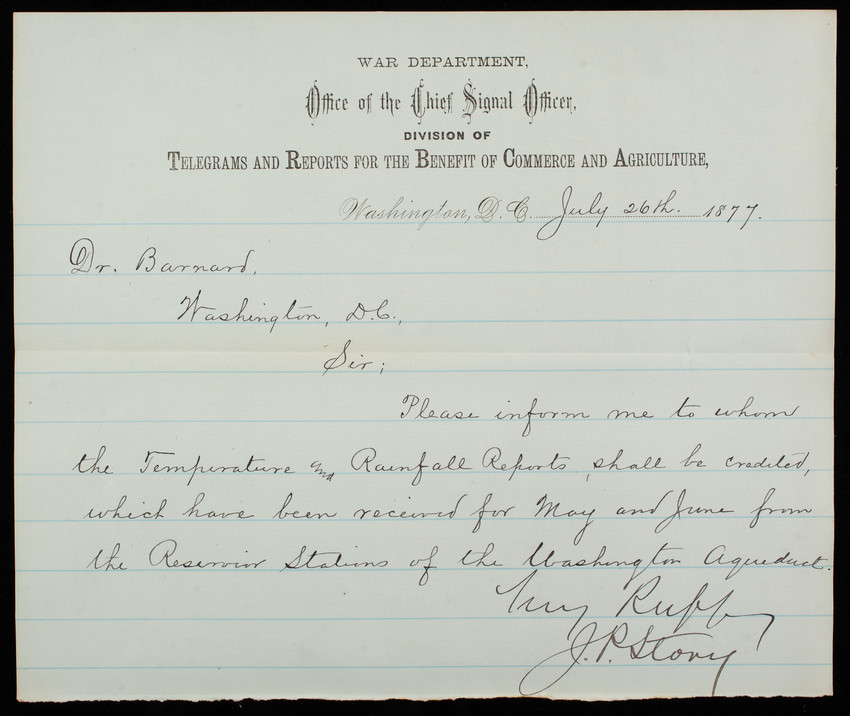 WAR DEPARTMENT,
Office of the Chief Signal Officer,
DIVISION OF
TELEGRAMS AND REPORTS FOR THE BENEFIT OF COMMERCE AND AGRICULTURE,
Washington, D.C. July 26th. 1877.
Dr. Barnard,
Washington, D.C.,
Sir;
Please inform me to whom
the Temperature and Rainfall Reports, shall be credited,
which have been received for May and June from
the Reservoir Stations of the Washington Aqueduct.
Very
J. P. Story